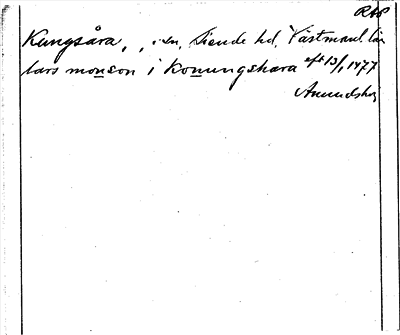 RAP
Kungsåra, , sn, Siende hd, Västmanl. län
lars monson i konungshara eft 13/1 1477